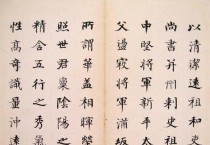 以清潔遠祖和吏
尚書并州刺史祖
中堅將軍新平太
父盪寇將軍蒲坂
所謂華蓋相暉榮
照世君稟陰陽之
精含五行之秀氣
性高奇識量沖遠